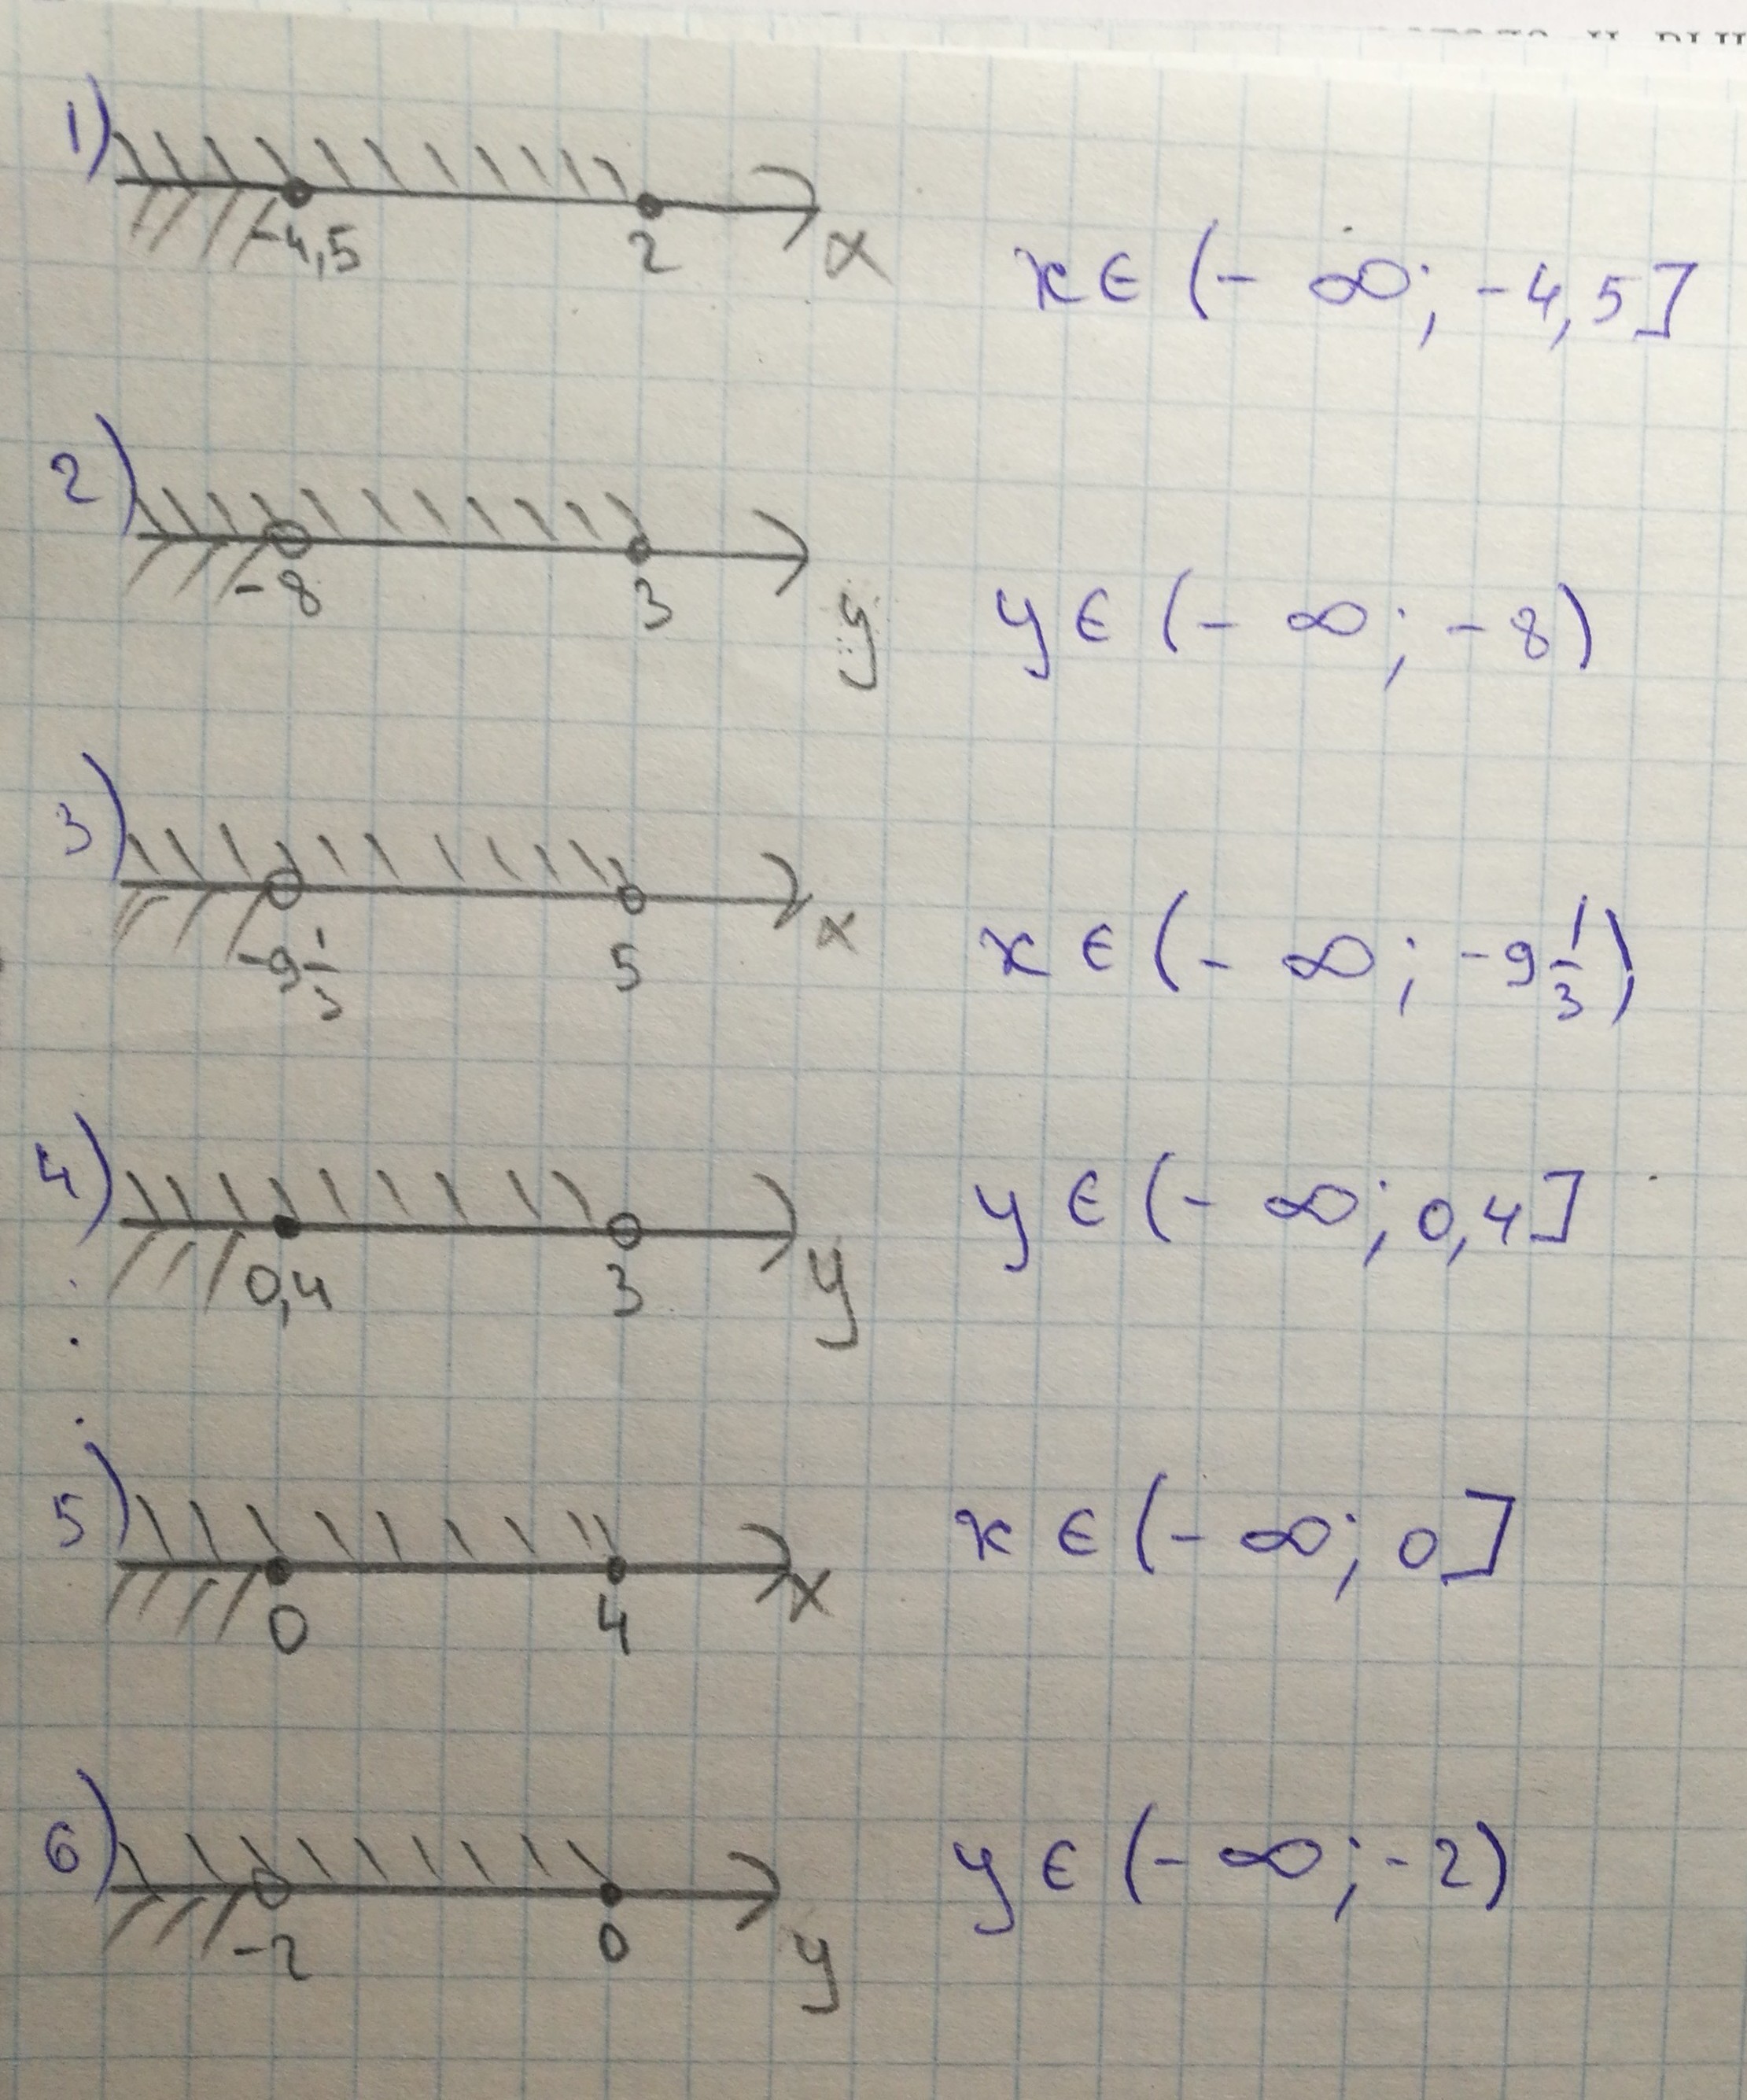 1) -4,5 2 x x ∈ (- ∞; -4,5]
2) -8 3 y y ∈ (- ∞; -8)
3) -9 1/3 5 x x ∈ (- ∞; -9 1/3)
4) 0,4 3 y y ∈ (- ∞; 0,4]
5) 0 4 x x ∈ (- ∞; 0]
6) -2 0 y y ∈ (- ∞; -2)